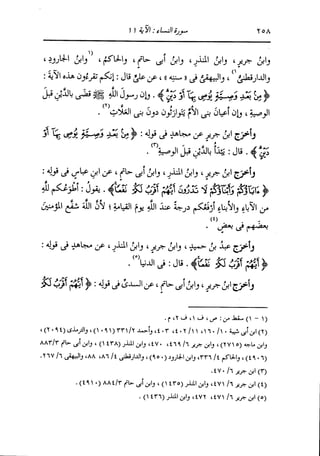 ٢٥٨ سورة النساء : الآية ١١
وابنُ جريرٍ ، وابنُ المنذرِ ، وابنُ أبى حاتمٍ ، والحاكمُ ، (١)وابنُ الجارودِ ،
والدارقطنىُّ(١) ، والبيهقىُّ فى « سننِه » ، عن علىٍّ قال : إنكم تقرءُون هذه الآيةَ :
﴿ مِنْ بَعْدِ وَصِيَّةٍ يُوصِى بِهَا أَوْ دَيْنٍ ﴾ . وإن رسولَ اللهِ ﷺ قضَى بالدَّينِ قبلَ
الوصيةِ ، وإن أعيانَ بنى الأمِّ يتوارثُون دونَ بنى العَلَّاتِ(٢) .
وأخرَج ابنُ جريرٍ ، عن مجاهدٍ فى قوله : ﴿ مِنْ بَعْدِ وَصِيَّةٍ يُوصِى بِهَا أَوْ
دَيْنٍ ﴾ . قال : يُبْدَأُ بالدَّينِ قبلَ الوصيةِ(٣) .
وأخرَج ابنُ جريرٍ ، وابنُ المنذرِ ، وابنُ أبى حاتمٍ ، عن ابنِ عباسٍ فى قوله :
﴿ ءَابَآؤُكُمْ وَأَبْنَآؤُكُمْ لَا تَدْرُونَ أَيُّهُمْ أَقْرَبُ لَكُمْ نَفْعًا ﴾ . يقولُ : أطوعُكم للهِ
من الآباءِ والأبناءِ أرفعُكم درجةً عندَ اللهِ يومَ القيامةِ ؛ لأن اللهَ شفَّع المؤمنين
بعضَهم فى بعضٍ(٤) .
وأخرَج عبدُ بنُ حميدٍ ، وابنُ جريرٍ ، وابنُ المنذرِ ، عن مجاهدٍ فى قوله :
﴿ أَيُّهُمْ أَقْرَبُ لَكُمْ نَفْعًا ﴾ . قال : فى الدنيا(٥) .
وأخرَج ابنُ جريرٍ ، وابنُ أبى حاتمٍ ، عن السدىِّ فى قوله : ﴿ أَيُّهُمْ أَقْرَبُ لَكُمْ
(١ - ١) سقط من : ص ، ف ١ ، ف ٢ ، م .
(٢) ابن أبى شيبة ١٠/ ١٦٠، ١١/ ٤٠٢، ٤٠٣ ، وأحمد ٢/ ٣٣١ (١٠٩١) ، والترمذى (٢٠٩٤) ،
وابن ماجه (٢٧١٥) ، وابن جرير ٦/ ٤٦٩، ٤٧٠ ، وابن المنذر (١٤٣٨) ، وابن أبى حاتم ٣/ ٨٨٣
(٤٩٠٦) ، والحاكم ٤/ ٣٣٦ ، وابن الجارود (٩٥٠) ، والدارقطنى ٤/ ٨٦، ٨٨ ، والبيهقى ٦/ ٢٦٧ .
(٣) ابن جرير ٦/ ٤٧٠ .
(٤) ابن جرير ٦/ ٤٧١ ، وابن المنذر (١٤٣٥) ، وابن أبى حاتم ٣/ ٨٨٤ (٤٩١٠) .
(٥) ابن جرير ٦/ ٤٧١، ٤٧٢ ، وابن المنذر (١٤٣٦) .